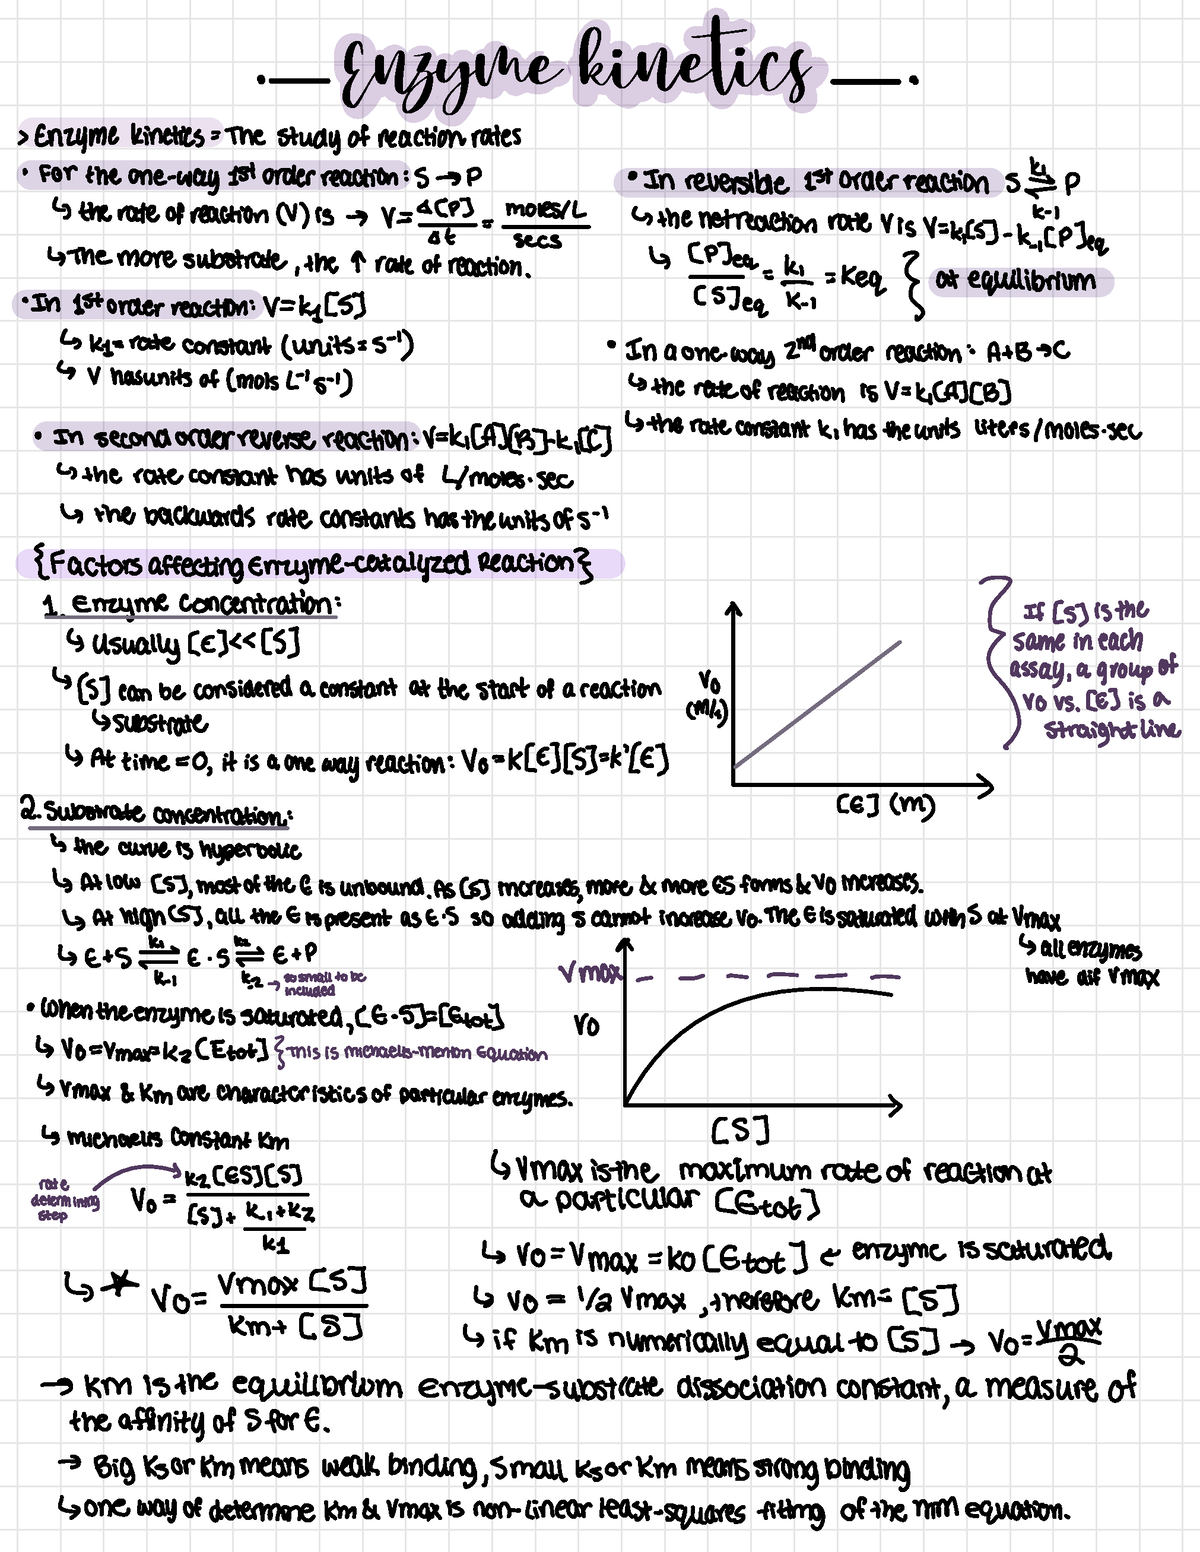 Enzyme kinetics
> Enzyme kinetics = The study of reaction rates
• For the one-way 1st order reaction: S → P
↳ the rate of reaction (V) is → V = Δ[P]/Δt = moles/L / secs
↳ The more substrate, the ↑ rate of reaction.
• In 1st order reaction: V = k1[S]
↳ k1 = rate constant (units = s⁻¹)
↳ V has units of (mols L⁻¹ s⁻¹)
• In second order reverse reaction: V=k1[A][B]-k1[C]
↳ the rate constant has units of L/moles·sec
↳ the backwards rate constants has the units of s⁻¹
• In reversible 1st order reaction S ⇌ P
k1
k-1
↳ the net reaction rate V is V=k1[S]-k-1[P]eq
↳ [P]eq/[S]eq = k1/k-1 = Keq } at equilibrium
• In a one-way 2nd order reaction: A+B→C
↳ the rate of reaction is V=k1[A][B]
↳ the rate constant k1 has the units liters/moles·sec
{Factors affecting Enzyme-catalyzed Reaction}
1. Enzyme Concentration:
↳ Usually [E]<<[S]
↳ [S] can be considered a constant at the start of a reaction
↳ substrate
↳ At time = 0, it is a one way reaction: V0 = k[E][S]=k'[E]
V0
(M/s)
[E] (m)
If [S] is the
same in each
assay, a group of
V0 vs. [E] is a
straight line
2. Substrate concentration:
↳ the curve is hyperbolic
↳ At low [S], most of the E is unbound. As [S] increases, more & more ES forms & V0 increases.
↳ At high [S], all the E is present as E·S so adding S cannot increase V0. The E is saturated with S at Vmax
↳ all enzymes
have dif Vmax
↳ E+S ⇌ E·S ⇌ E+P
k1 k2
k-1 k-2 → so small to be
included
• When the enzyme is saturated, [E·S]=[Etot]
↳ V0=Vmax=k2[Etot] { This is michaelis-menton Equation
↳ Vmax & Km are characteristics of particular enzymes.
Vmax
V0
[S]
↳ michaelis constant Km
rate
determining
step
V0 = k2[ES][S] / [S]+ k-1+k2/k1
↳ ★ V0 = Vmax [S] / Km + [S]
↳ Vmax is the maximum rate of reaction at
a particular [Etot]
↳ V0 = Vmax = k0 [Etot] ← enzyme is saturated
↳ V0 = 1/2 Vmax, therefore Km= [S]
↳ if Km is numerically equal to [S] → V0 = Vmax/2
→ Km is the equilibrium enzyme-substrate dissociation constant, a measure of
the affinity of S for E.
→ Big Ks or Km means weak binding, Small Ks or Km means strong binding
↳ one way of determine Km & Vmax is non-linear least-squares fitting of the mm equation.